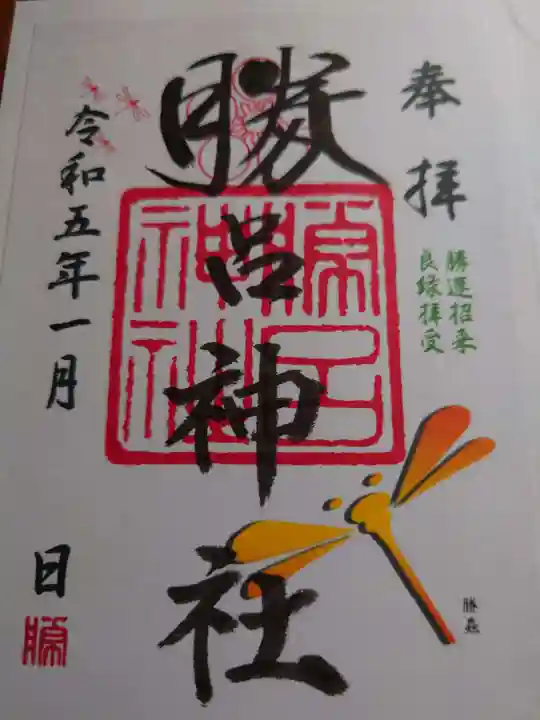 奉拝
勝運招来
良縁拝受
勝呂神社
令和五年一月
日
勝
勝虫